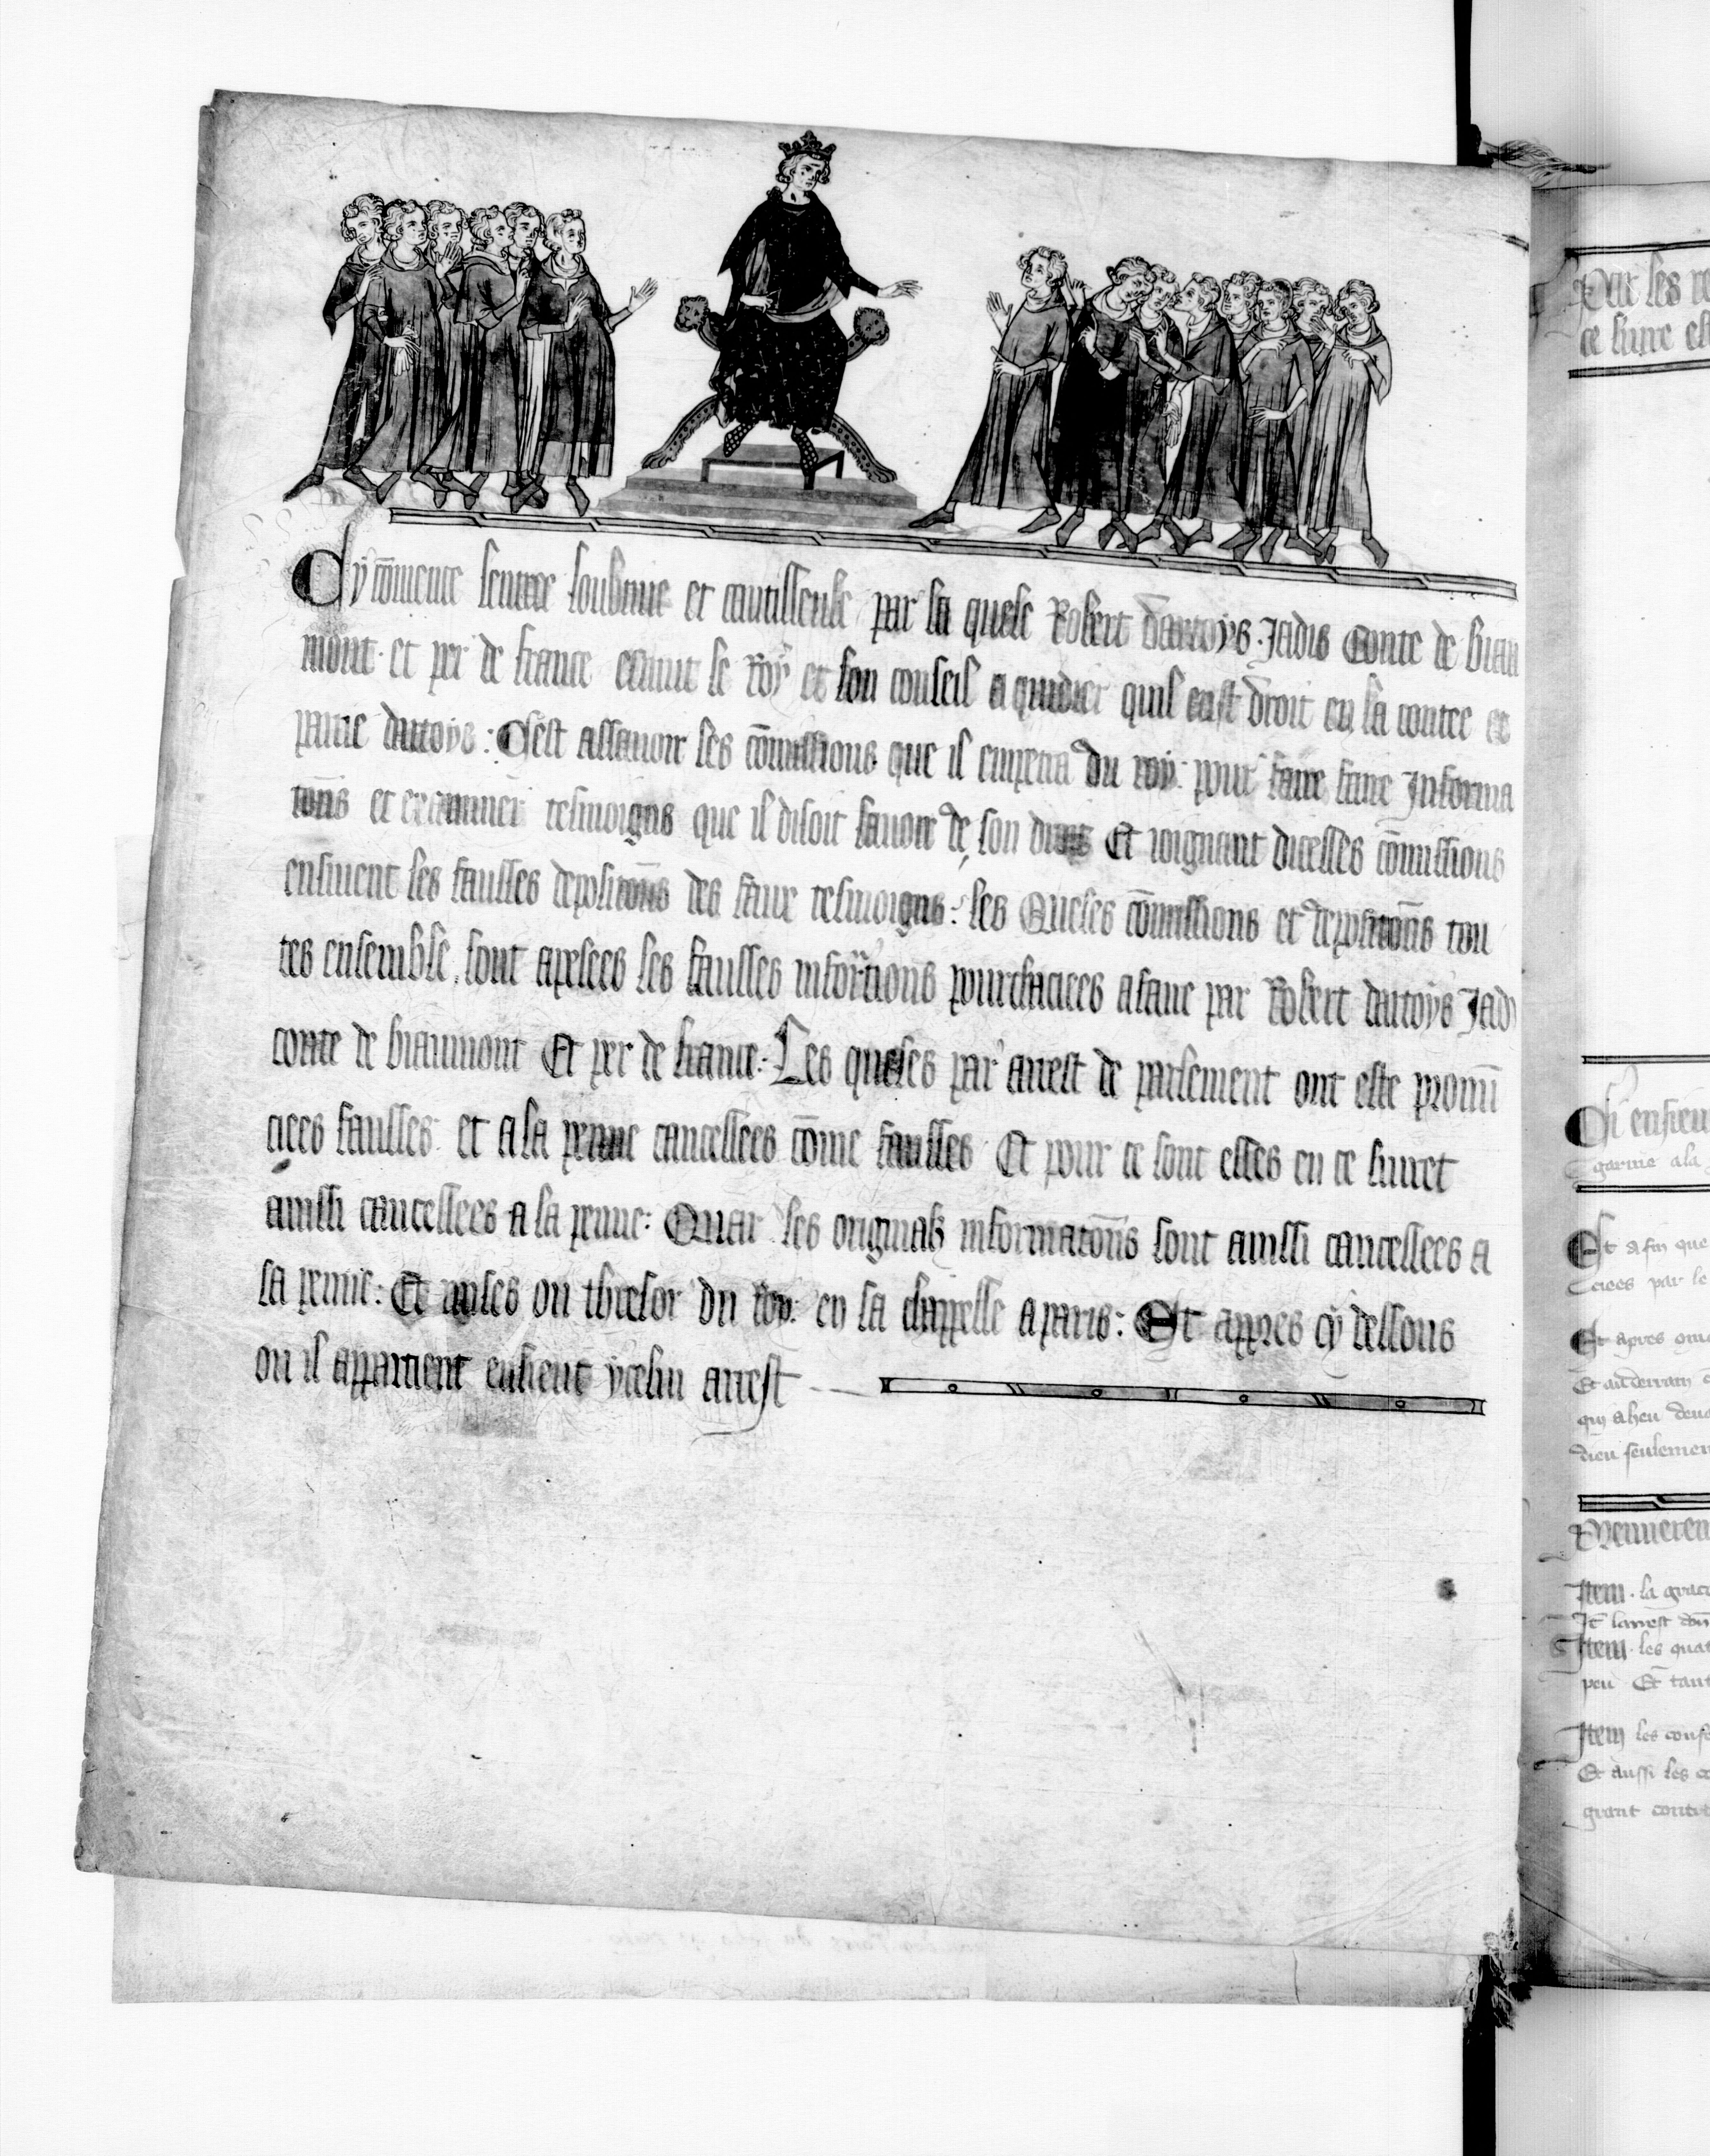 Cy cōmence lentree soubtive et cautilleuse par la quele Robert dartoys. Jadis Conte de biau
mont et per de france esmut le Roy et son conseil a cuidier quil eust droit en la conte et
parrie dartoys : Cest assavoir les cōmissions que il empetra du roy pour faire faire Informa
tōns et examiner tesmoigns que il disoit savoir de son droit Et ioignant dicelles cōmissions
ensivent les fausses depositōns des faux tesmoigns : les Queles cōmissions et depositōns tou
tes ensemble, sont apelees les fausses infōrtions pourchaciees a faire par Robert dartoys Jad
conte de biaumont Et per de france : Les queles par arrest de parlement ont este pronun
ciees fausses et a la penne cancellees cōme fausses Et pour ce sont elles en ce livret
ainssi cancellees a la penne : Quar les originalz informatōns sont ainssi cancellees a
la penne : Et mises ou thresor du Roy en sa chappelle a paris : Et apres cy dessous
ou il appartient ensieut ycelui arrest
Par les
ce livre est
Ci ensieu
garnie a la
Et afin que
ciees par le
Et apres
Et
qui a heu
dieu seulemen
Premieren
Item. la grace
It larrest
Item. les quat
peu Et tant
Item les conf
Et aussi les
grant